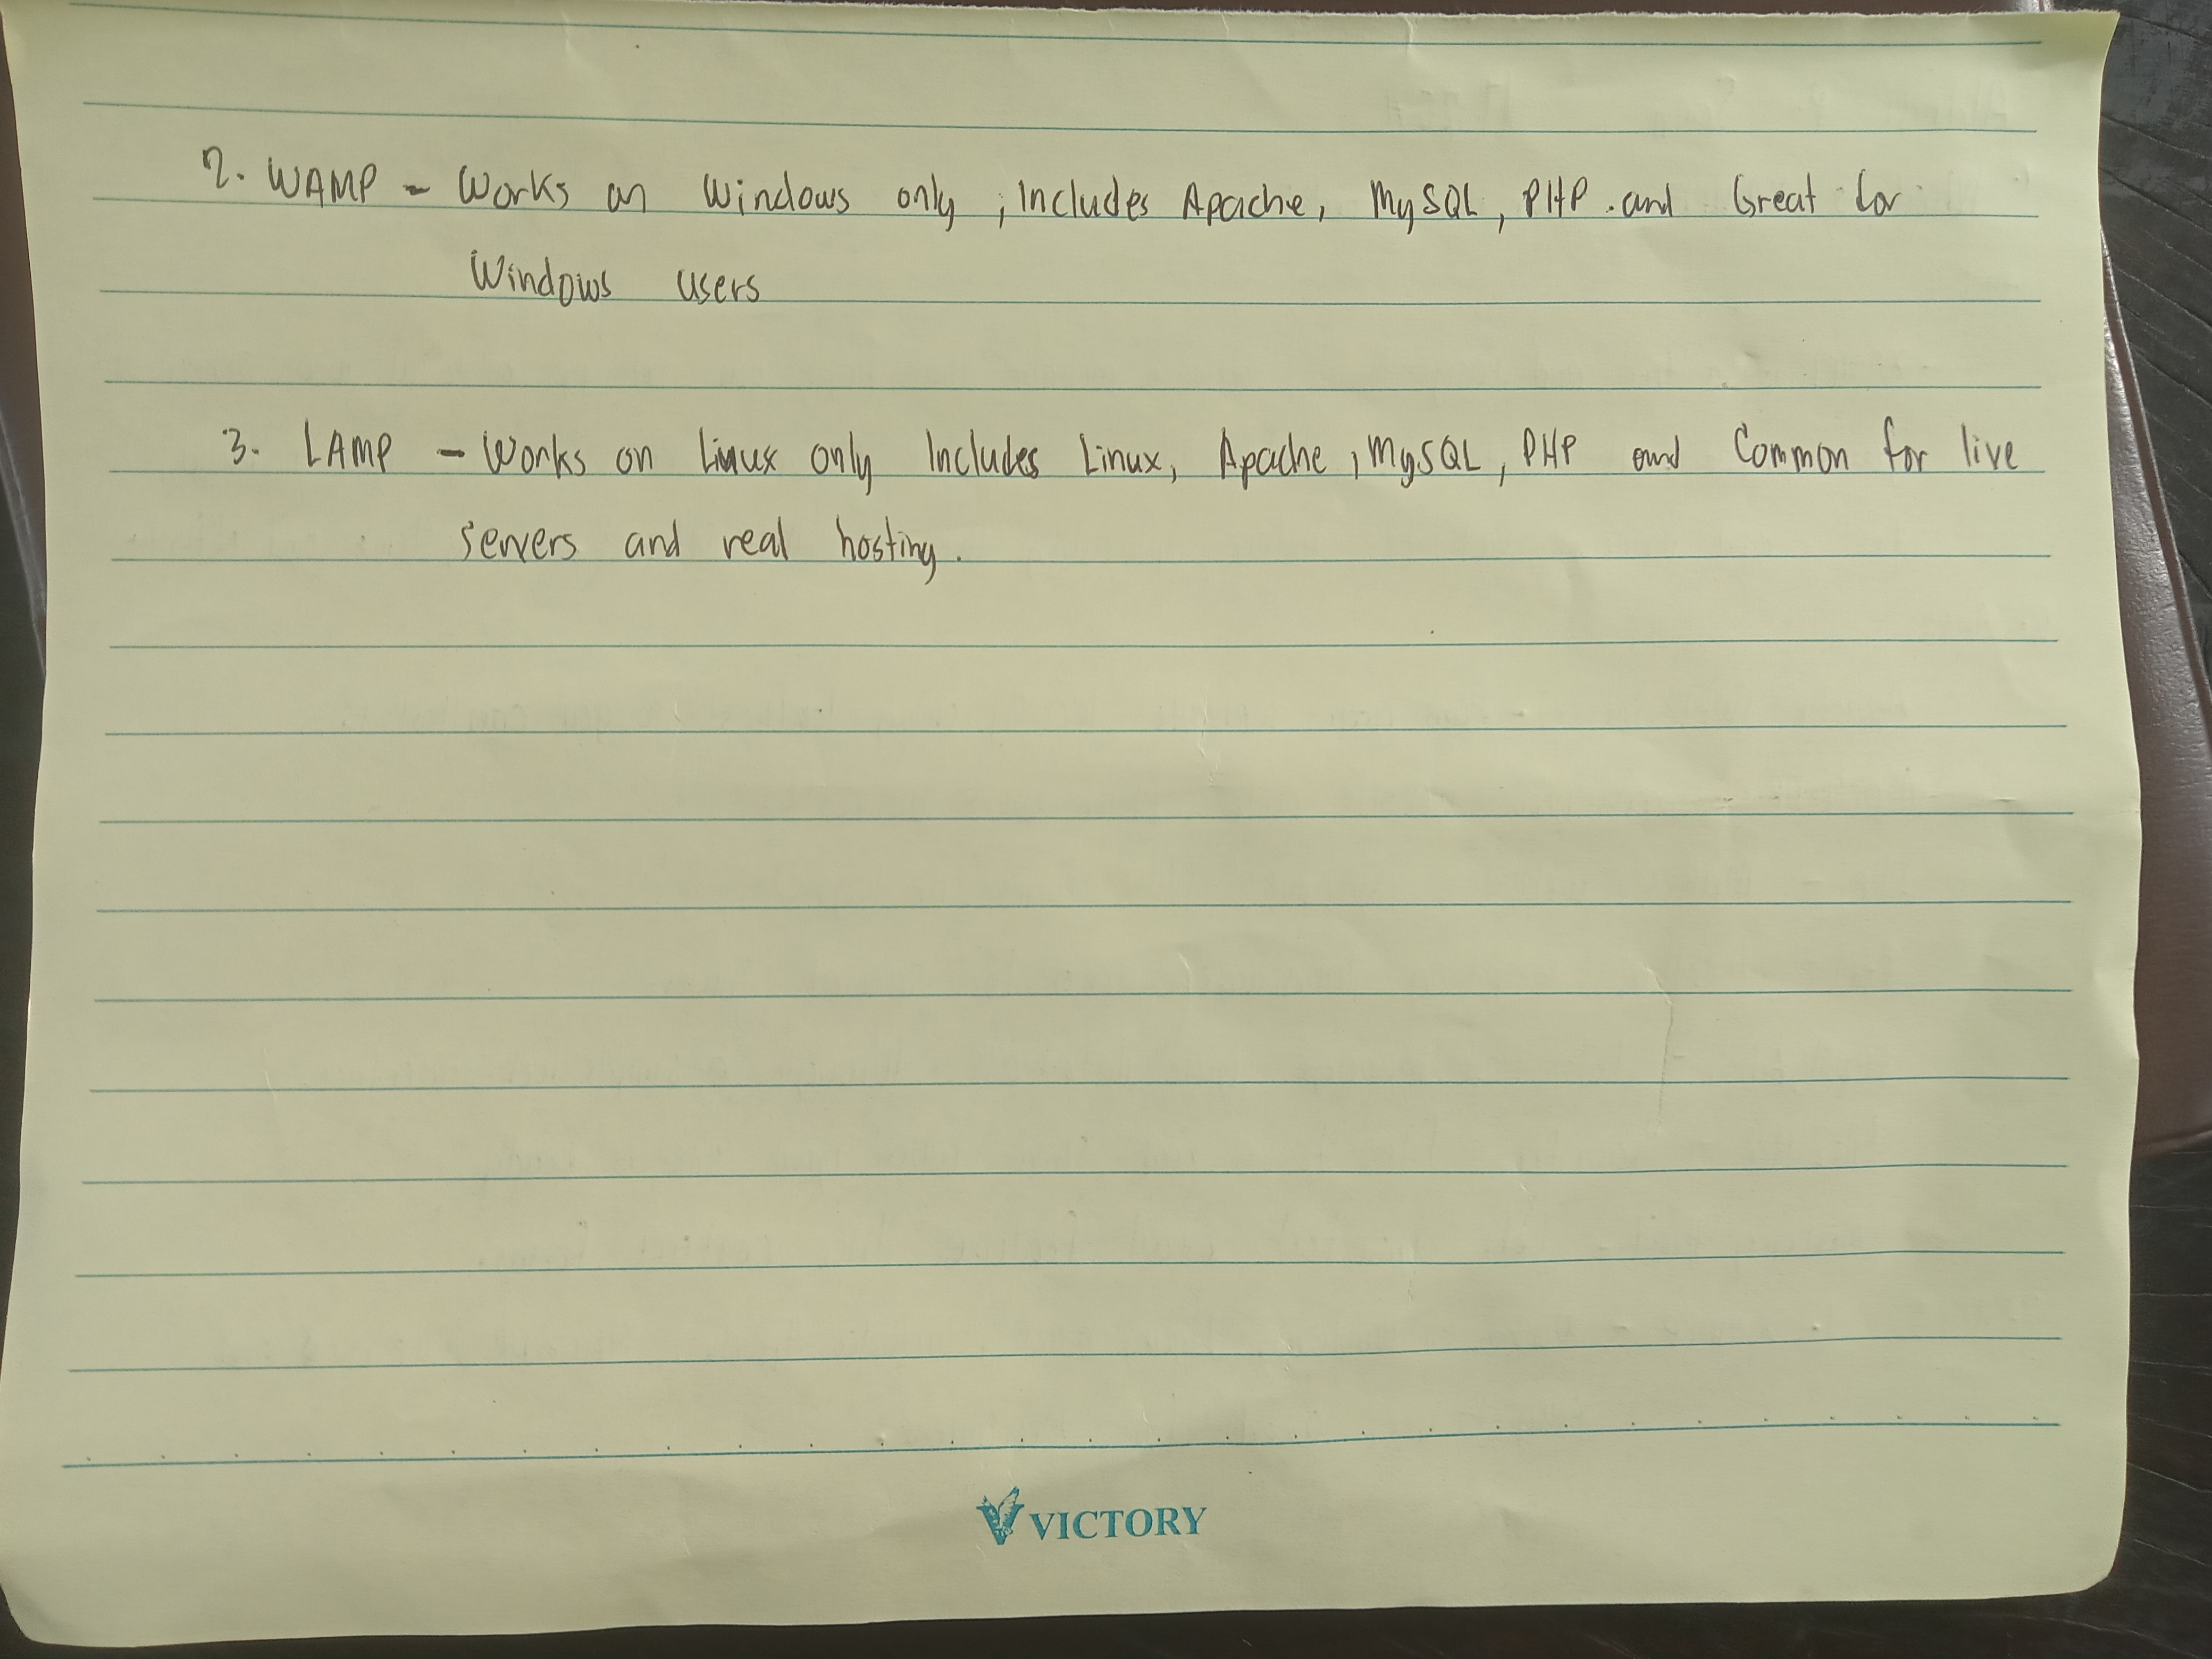 2. WAMP - Works on Windows only ; Includes Apache, MySQL, PHP. and Great for
Windows users
3. LAMP - Works on Linux only Includes Linux, Apache, MySQL, PHP and Common for live
servers and real hosting.
VICTORY